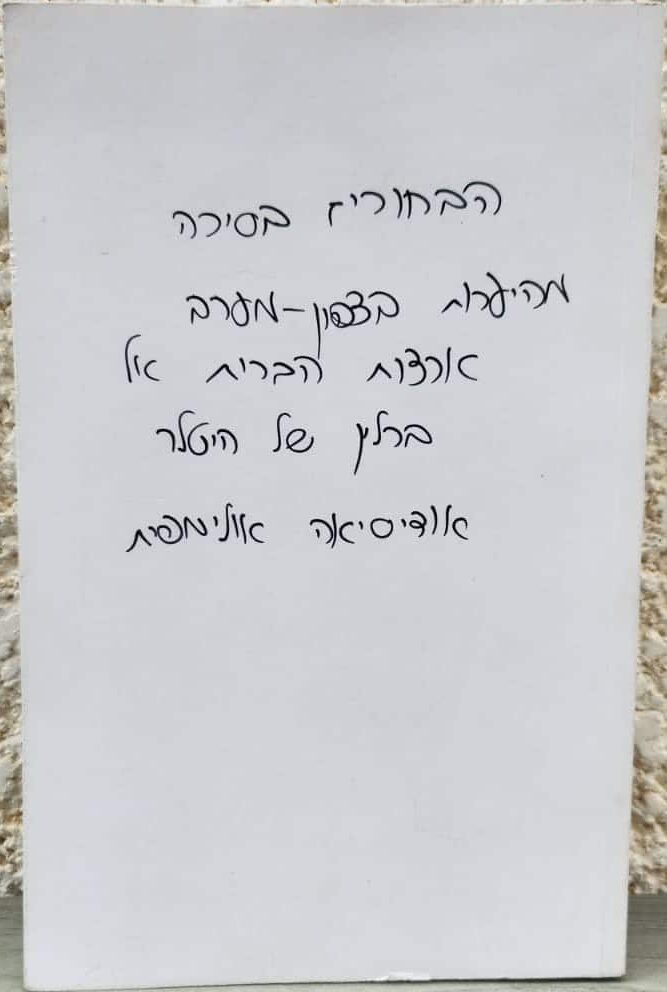 הבחורים בסירה
מהיערות בצפון-מערב
ארצות הברית אל
ברלין של היטלר
אודיסיאה אולימפית